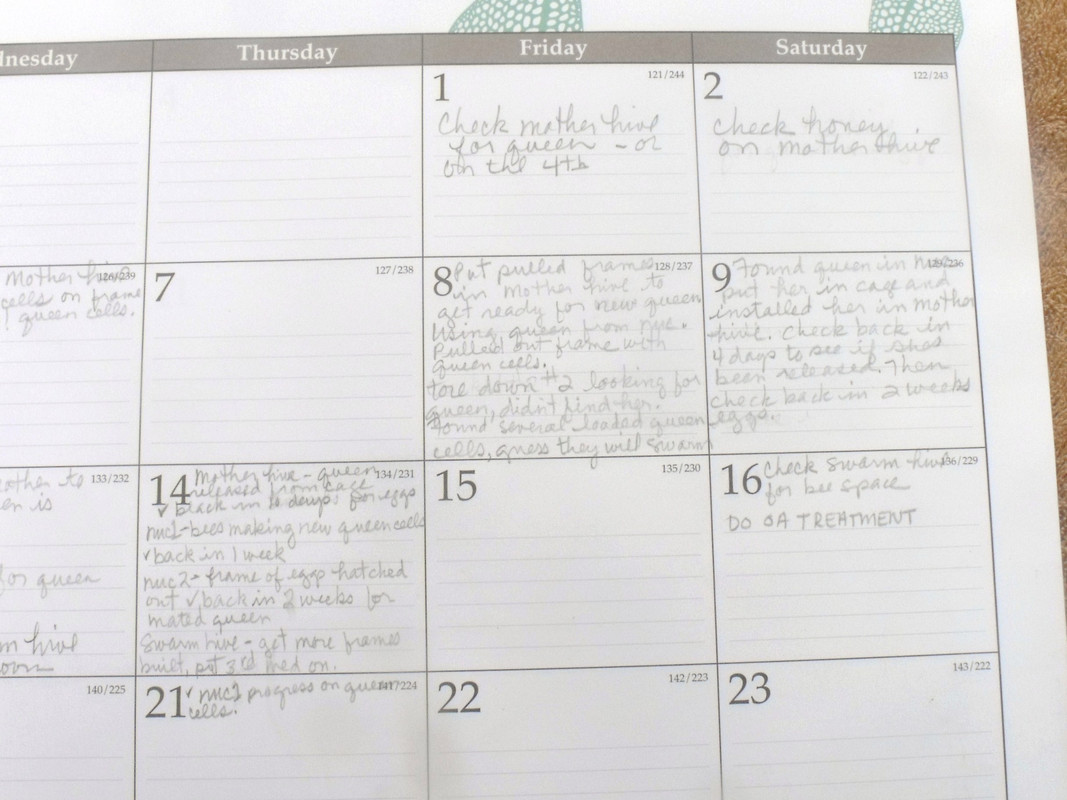 dnesday
Thursday
Friday
Saturday
1
121/244
Check mother hive
for queen - or
on the 4th
2
122/243
Check honey
on mother hive
126/239
Mother hive
cells on frame
queen cells.
7
127/238
8
128/237
Put pulled frames
in mother hive to
get ready for new queen
Using queen from nuc.
Pulled out frame with
queen cells.
tore down #2 looking for
queen, didn't find her.
Found several loaded queen
cells, guess they will swarm
9
129/236
Found queen in nuc
put her in cage and
installed her in mother
hive. Check back in
4 days to see if shes
been released. Then
check back in 2 weeks
eggs.
133/232
mother to
en is
for queen
m hive
14
134/231
Mother hive - queen
released from cage
✓ back in 10 days: for eggs
nuc1-bees making new queen cells
✓back in 1 week
nuc2- frame of eggs hatched
out ✓ back in 2 weeks for
mated queen
Swarm hive - get more frames
built, put 3rd med on.
15
135/230
16
136/229
Check swarm hive
for bee space
DO OA TREATMENT
140/225
21
141/224
✓ nuc1 progress on queen
cells.
22
142/223
23
143/222